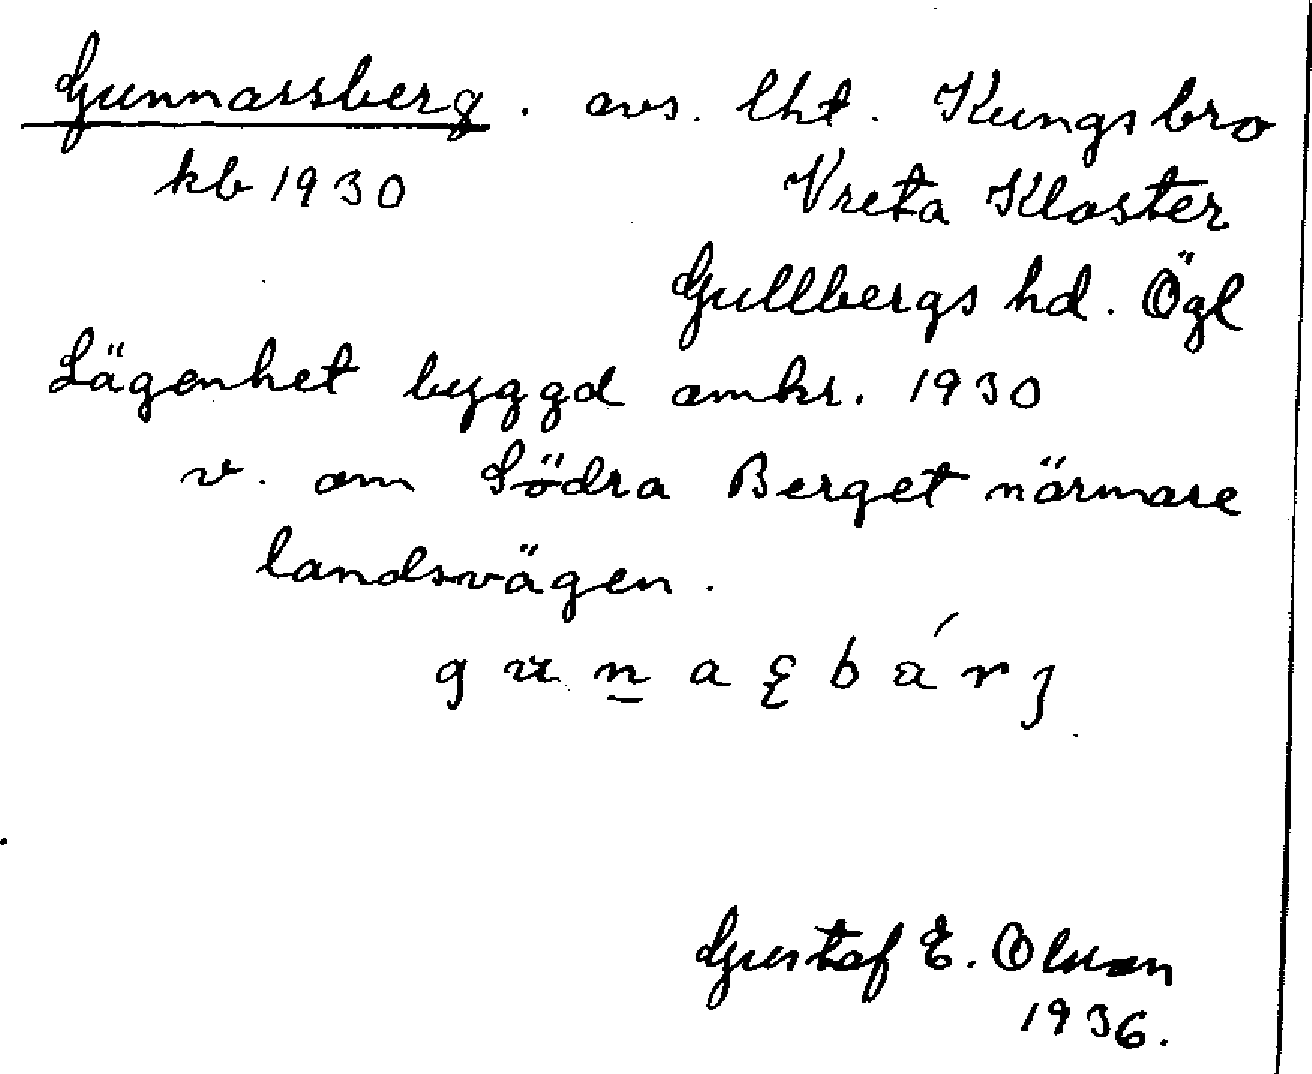 Gunnarsberg. avs. lht. Kungsbro
kb 1930 Vreta Kloster
Gullbergs hd. Ögl
Lägenhet byggd omkr. 1930
v. om Södra Berget närmare
landsvägen.
Gustaf E. Olsson
1936.